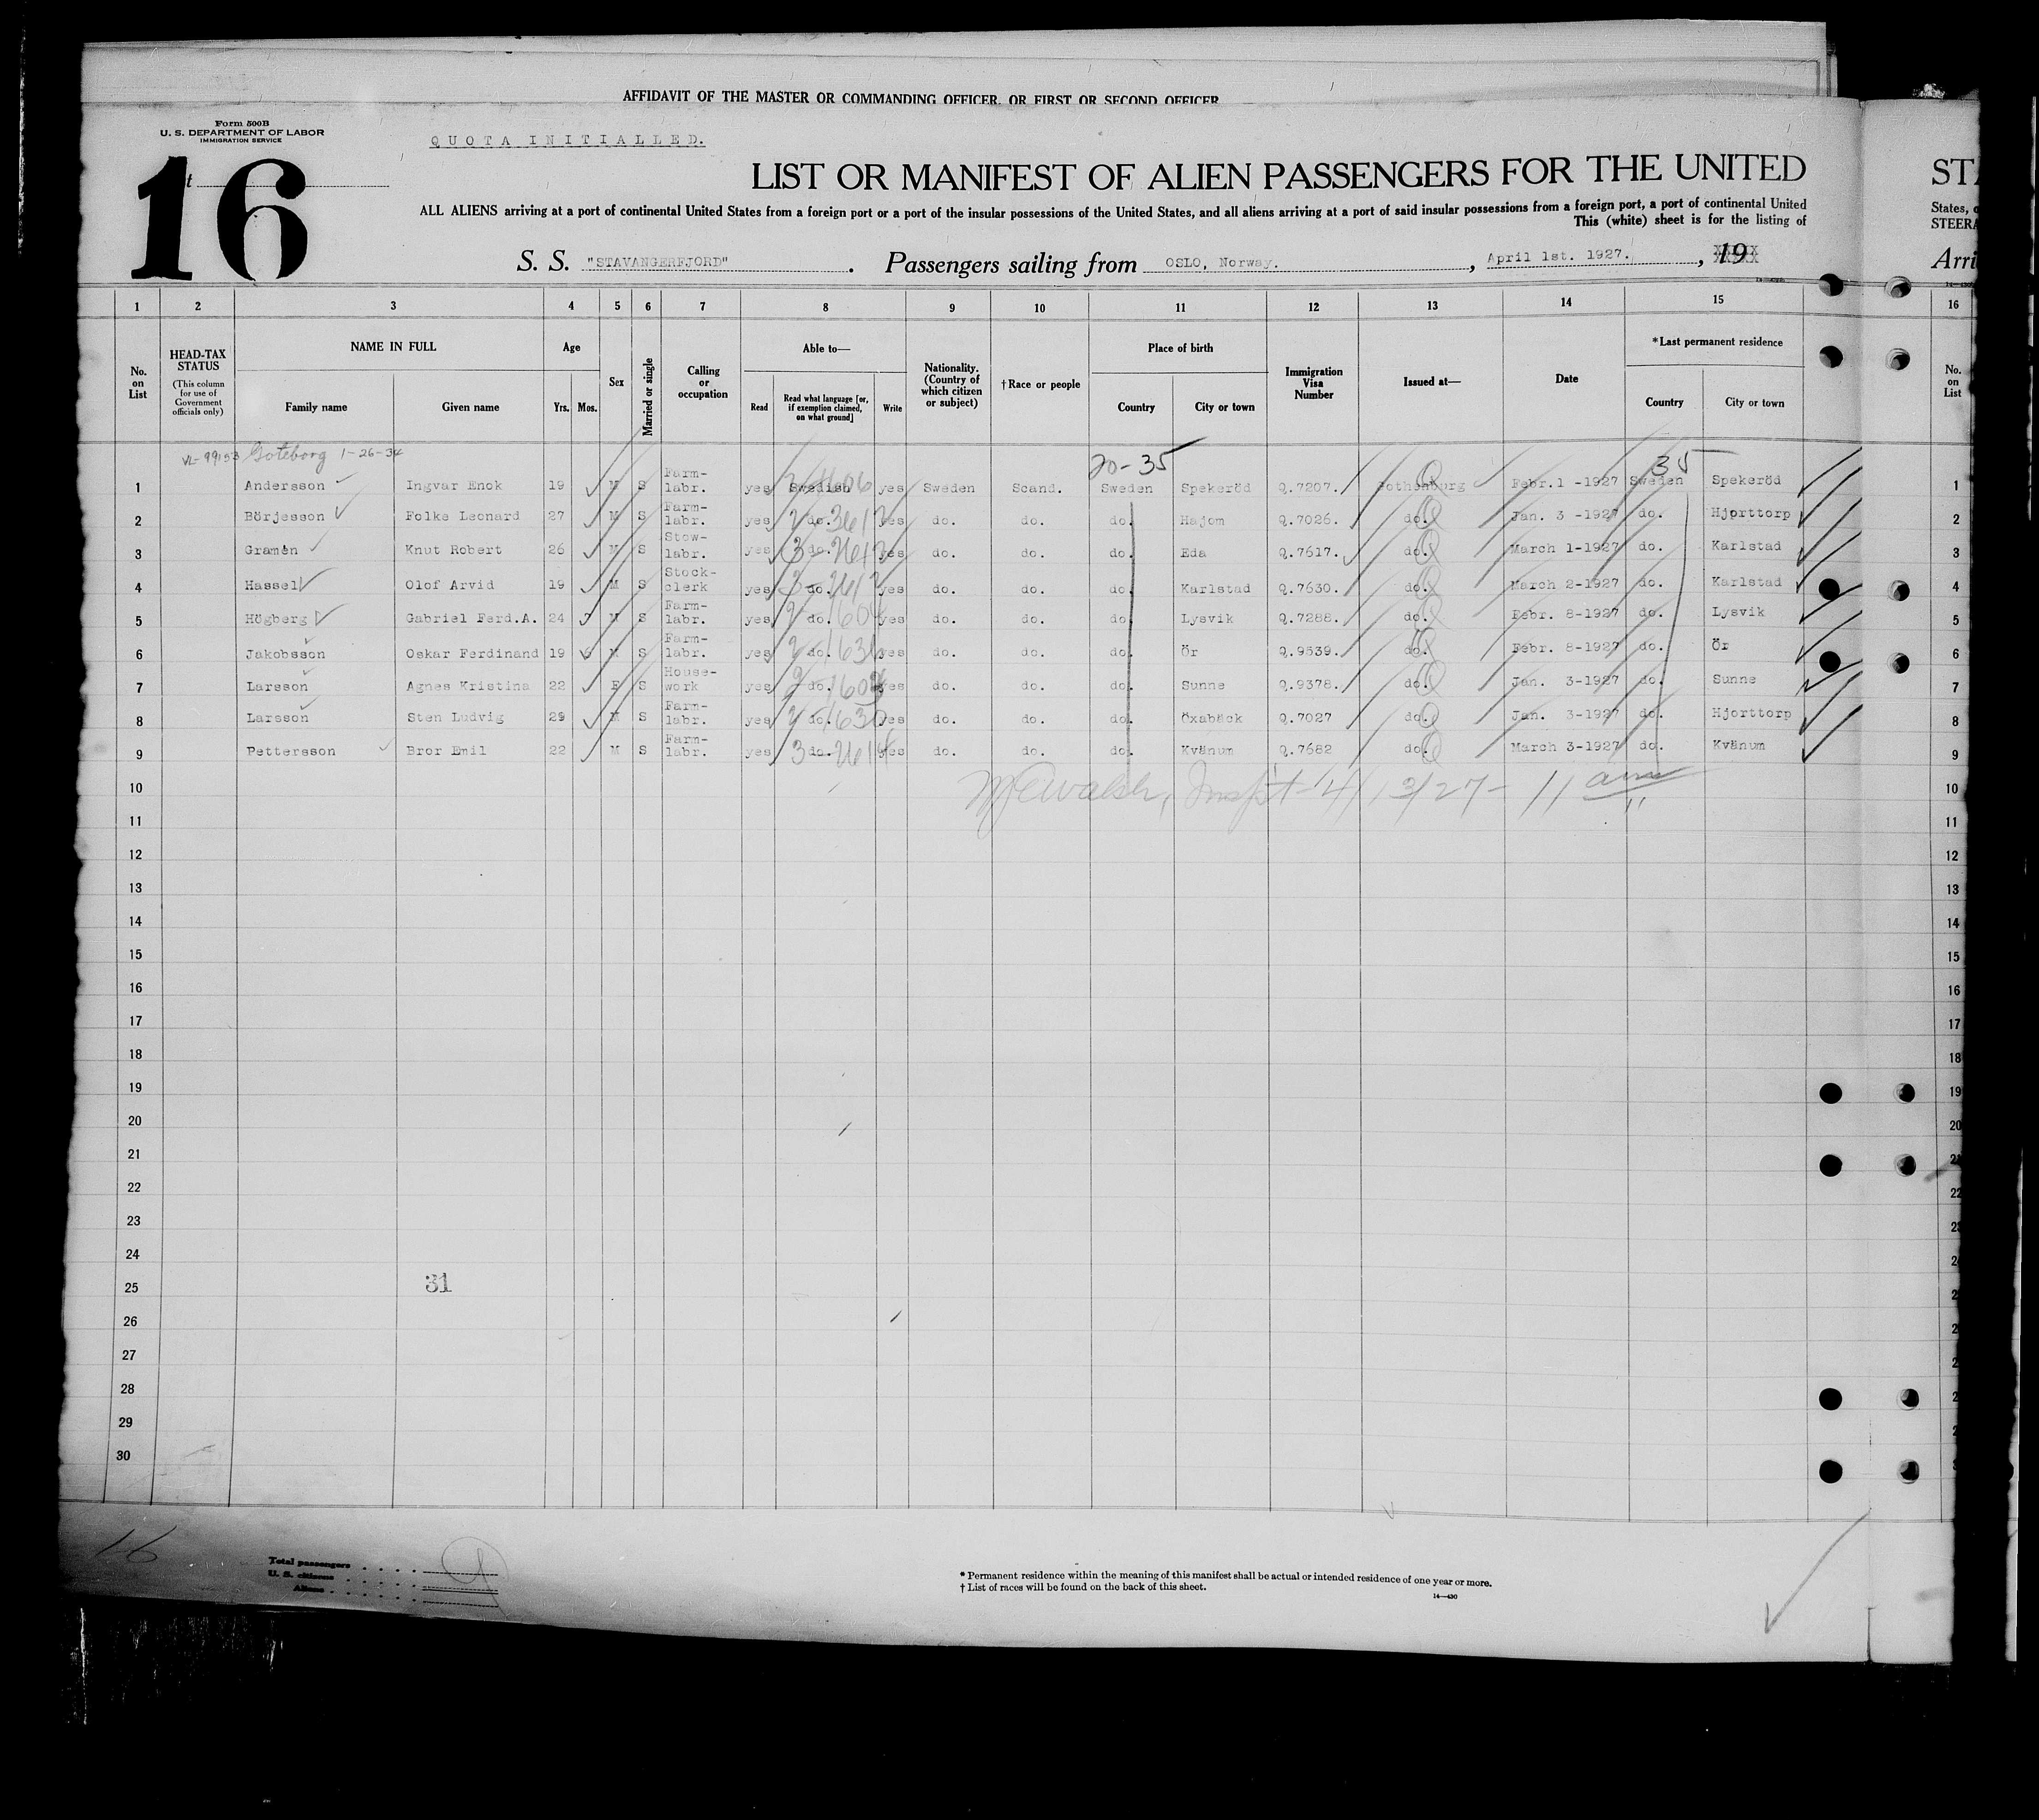 AFFIDAVIT OF THE MASTER OR COMMANDING OFFICER, OR FIRST OR SECOND OFFICER
Form 500B
U. S. DEPARTMENT OF LABOR
IMMIGRATION SERVICE
QUOTA INITIALLED.
16
LIST OR MANIFEST OF ALIEN PASSENGERS FOR THE UNITED
ALL ALIENS arriving at a port of continental United States from a foreign port or a port of the insular possessions of the United States, and all aliens arriving at a port of said insular possessions from a foreign port, a port of continental United
This (white) sheet is for the listing of
S. S. "STAVANGERFJORD" . Passengers sailing from OSLO, Norway. , April 1st. 1927. , 19
1 2 3 4 5 6 7 8 9 10 11 12 13 14 15 16
No. on List
HEAD-TAX STATUS (This column for use of Government officials only)
NAME IN FULL
Family name Given name
Age
Yrs. Mos.
Sex
Married or single
Calling or occupation
Able to—
Read Read what language [or, if exemption claimed, on what ground] Write
Nationality. (Country of which citizen or subject)
† Race or people
Place of birth
Country City or town
Immigration Visa Number
Issued at—
Date
*Last permanent residence
Country City or town
No. on List
Göteborg 1-26-34
20-35 35
1 Andersson Ingvar Enok 19 M S Farm-labr. yes Swedish yes Sweden Scand. Sweden Spekeröd Q.7207. Gothenburg Febr.1 -1927 Sweden Spekeröd 1
2 Börjesson Folke Leonard 27 M S Farm-labr. yes do. yes do. do. do. Hajom Q.7026. do. Jan. 3 -1927 do. Hjorttorp 2
3 Gramén Knut Robert 26 M S Stow-labr. yes do. yes do. do. do. Eda Q.7617. do. March 1-1927 do. Karlstad 3
4 Hassel Olof Arvid 19 M S Stock-clerk yes do. yes do. do. do. Karlstad Q.7630. do. March 2-1927 do. Karlstad 4
5 Högberg Gabriel Ferd.A. 24 M S Farm-labr. yes do. yes do. do. do. Lysvik Q.7288. do. Febr. 8-1927 do. Lysvik 5
6 Jakobsson Oskar Ferdinand 19 M S Farm-labr. yes do. yes do. do. do. Ör Q.9539. do. Febr. 8-1927 do. Ör 6
7 Larsson Agnes Kristina 22 F S House-work yes do. yes do. do. do. Sunne Q.9378. do. Jan. 3-1927 do. Sunne 7
8 Larsson Sten Ludvig 29 M S Farm-labr. yes do. yes do. do. do. Öxabäck Q.7027 do. Jan. 3-1927 do. Hjorttorp 8
9 Pettersson Bror Emil 22 M S Farm-labr. yes do. yes do. do. do. Kvänum Q.7682 do. March 3-1927 do. Kvänum 9
10 Walsh, Inspt- 4/13/27- 11 am 10
11 11
12 12
13 13
14 14
15 15
16 16
17 17
18 18
19 19
20 20
21 21
22 22
23
24
25 31
26
27
28
29
30
16
Total passengers
U. S. citizens
Aliens
9
* Permanent residence within the meaning of this manifest shall be actual or intended residence of one year or more.
† List of races will be found on the back of this sheet.
14—430